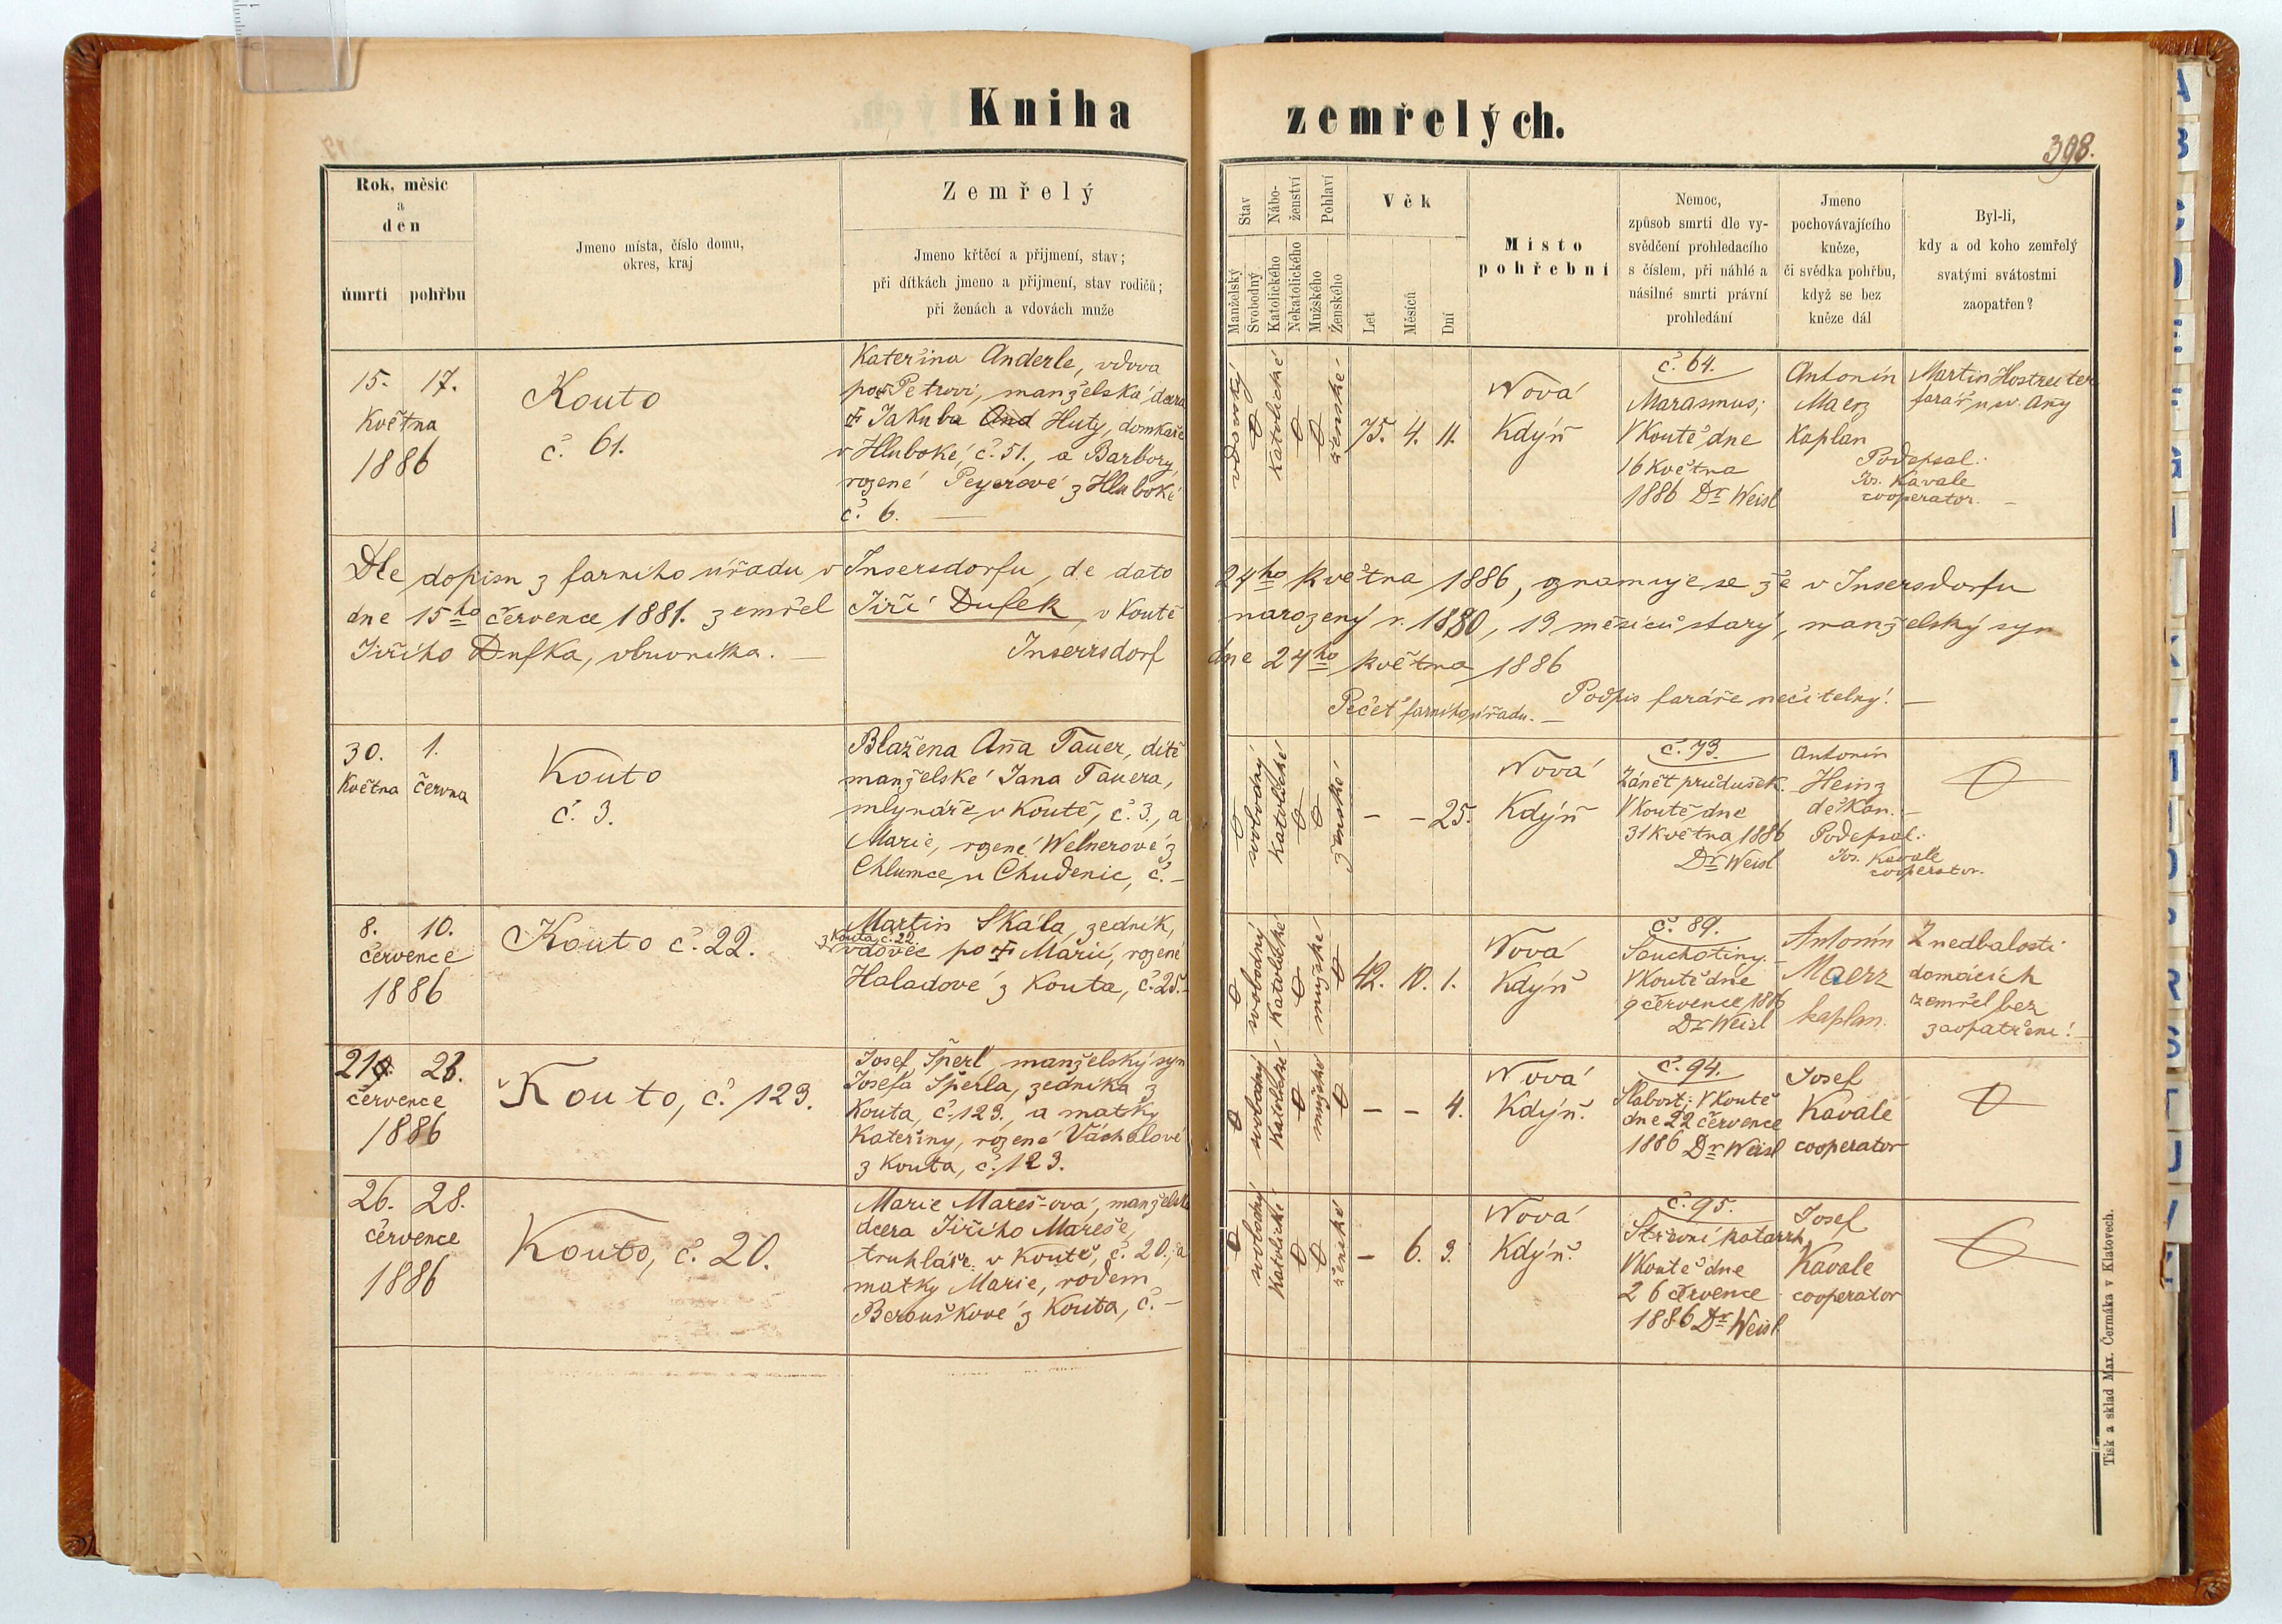 Kniha zemřelých.
398.
Rok, měsíc
a
den
úmrtí pohřbu
Jmeno místa, číslo domu,
okres, kraj
Zemřelý
Jmeno křtěcí a přijmení, stav;
při dítkách jmeno a přijmení, stav rodičů;
při ženách a vdovách muže
Stav
Manželský
Svobodný
Nábo-
ženství
Katolického
Nekatolického
Pohlaví
Mužského
Ženského
Věk
Let
Měsíců
Dní
Místo
pohřební
Nemoc,
způsob smrti dle vy-
svědčení prohledacího
s číslem, při náhlé a
násilné smrti právní
prohledání
Jmeno
pochovávajícího
kněze,
či svědka pohřbu,
když se bez
kněze dál
Byl-li,
kdy a od koho zemřelý
svatými svátostmi
zaopatřen?
15. 17.
Května
1886
Kouto
č. 61.
Kateřina Anderle, vdova
po Petrovi, manželská dcera
Jakuba And Huty, domkaře
v Hluboké č. 51., a Barbory,
rozené Peyerové z Hluboké
č. 6. —
vdovský
katolické
ženské
75. 4. 11.
Nová
Kdýň
č. 64.
Marasmus;
V Koutě dne
16 Května
1886 Dr Weisl
Antonín
Maerz
Kaplan
Podepsal:
Jos. Kavale
cooperator. —
Martin Hostreiter
farář u sv. Any
Dle dopisu z farního úřadu v Insersdorfu, de dato 24ho května 1886, oznamuje se že v Insersdorfu
dne 15ho července 1881. zemřel Jiří Dufek, v Koutě narozený r. 1880, 19 měsíců starý, manželský syn
Jiřího Dufka, obuvníka. — Insersdorf dne 24ho května 1886
Pečeť farního úřadu. — Podpis faráře nečitelný! —
30. 1.
Května června
Kouto
č. 3.
Blažena Ana Tauer, dítě
manželské Jana Tauera,
mlynáře v Koutě, č. 3., a
Marie, rozené Welnerové z
Chlumce u Chudenic, č. —
svobodný
katolické
ženské
— — 25.
Nová
Kdýň
č. 73.
Zánět průdušek.
V Koutě dne
31 května 1886
Dr Weisl
Antonín
Heinz
děkan. —
Podepsal:
Jos. Kavale
cooperator.
8. 10.
července
1886
Kouto č. 22.
Martin Skála, zedník,
z Kouta, č. 22.
vdovec po Marii, rozené
Haladové z Kouta, č. 25. —
svobodný
katolické
mužské
42. 10. 1.
Nová
Kdýň
č. 89.
Souchotiny. —
V Koutě dne
9 července 1886
Dr Weisl
Antonín
Maerz
kaplan.
Z nedbalosti
domácích
zemřel bez
zaopatření! —
21. 23.
července
1886
Kouto, č. 123.
Josef Šperl, manželský syn
Josefa Šperla, zedníka z
Kouta, č. 123., a matky
Kateřiny, rozené Váchalové
z Kouta, č. 123.
svobodný
katolické
mužské
— — 4.
Nová
Kdýň.
č. 94.
Slabost; V Koutě
dne 22 července
1886 Dr Weisl
Josef
Kavale
cooperator
26. 28.
července
1886
Kouto, č. 20.
Marie Mareš-ová, manželská
dcera Jiřího Mareše,
truhláře v Koutě, č. 20., a
matky Marie, rodem
Berouškové z Kouta, č. —
svobodný
katolické
ženské
— 6. 3.
Nová
Kdýň.
č. 95.
Střevní katarrh
V Koutě dne
26 července
1886 Dr Weisl
Josef
Kavale
cooperator
Tisk a sklad Max. Čermáka v Klatovech.